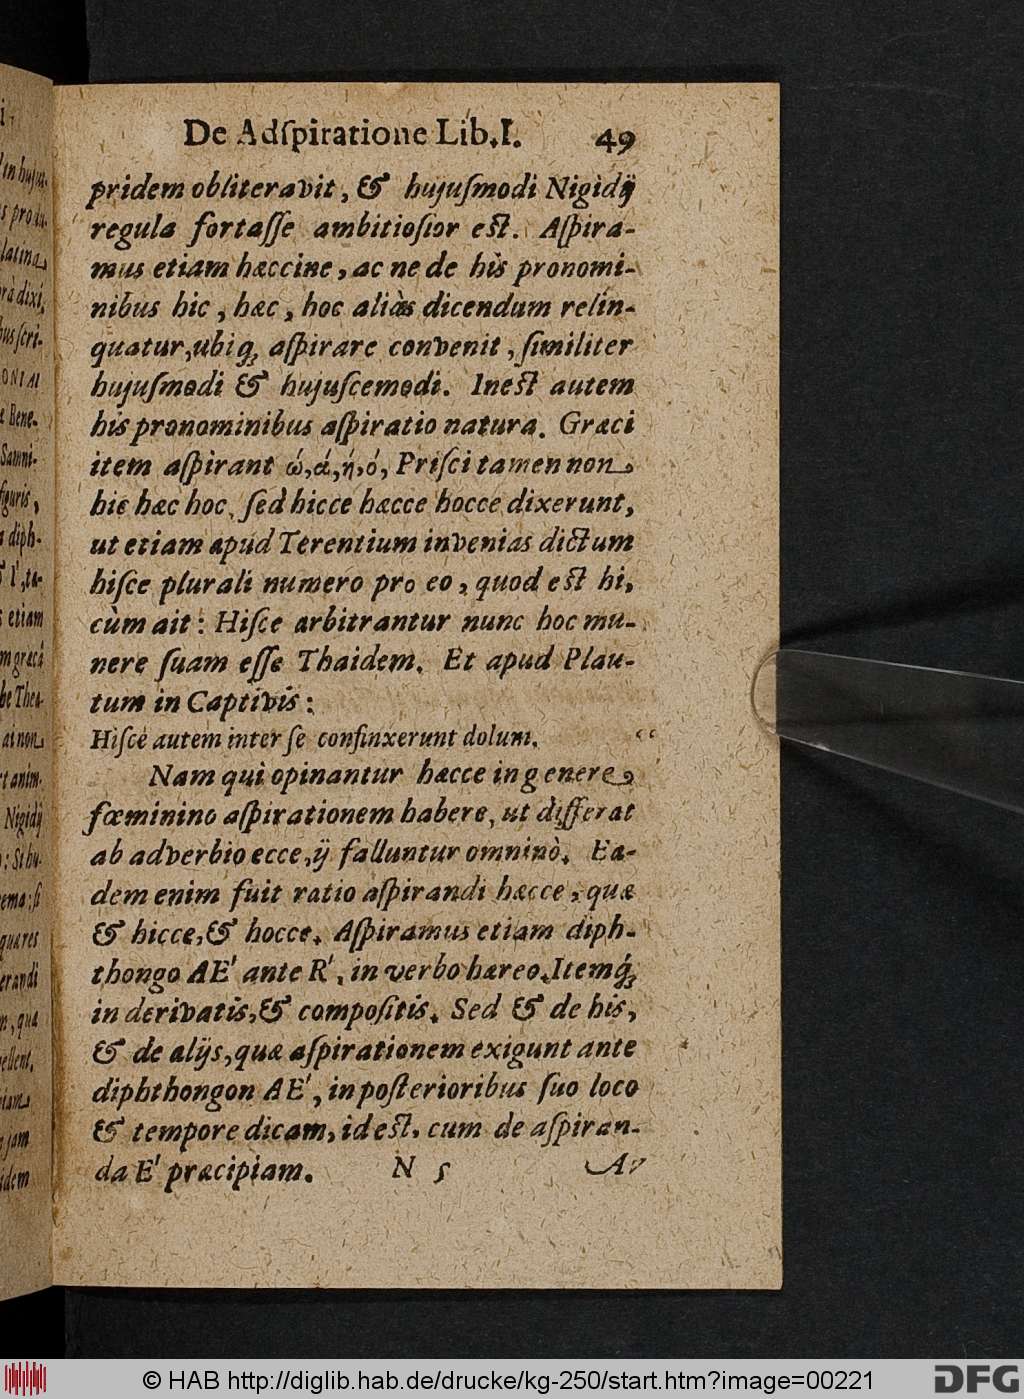 De Adſpiratione Lib. I. 49
pridem obliteravit, & hujuſmodi Nigidij
regula fortaſſe ambitioſior eſt. Aſpira-
mus etiam hæccine, ac ne de his pronomi-
nibus hic, hæc, hoc aliàs dicendum relin-
quatur, ubiq; aſpirare convenit, ſimiliter
hujuſmodi & hujuſcemodi. Ineſt autem
his pronominibus aſpiratio natura. Græci
item aſpirant ώ, ά, ή, ό, Priſci tamen non
hic hæc hoc, ſed hicce hæcce hocce dixerunt,
ut etiam apud Terentium invenias dictum
hiſce plurali numero pro eo, quod eſt hi,
cùm ait: Hiſce arbitrantur nunc hoc mu-
nere ſuam eſſe Thaidem. Et apud Plau-
tum in Captivis:
Hiſce autem inter ſe confinxerunt dolum. “
Nam qui opinantur hæcce in genere
fœminino aſpirationem habere, ut differat
ab adverbio ecce, ij falluntur omninò. Ea-
dem enim fuit ratio aſpirandi hæcce, quæ
& hicce, & hocce. Aſpiramus etiam diph-
thongo AE' ante R', in verbo hæreo. Itemq́;
in derivatis, & compoſitis. Sed & de his,
& de alijs, quæ aſpirationem exigunt ante
diphthongon AE', in poſterioribus ſuo loco
& tempore dicam, id eſt, cum de aſpiran-
da E' præcipiam. N 5 Av
© HAB http://diglib.hab.de/drucke/kg-250/start.htm?image=00221
DFG